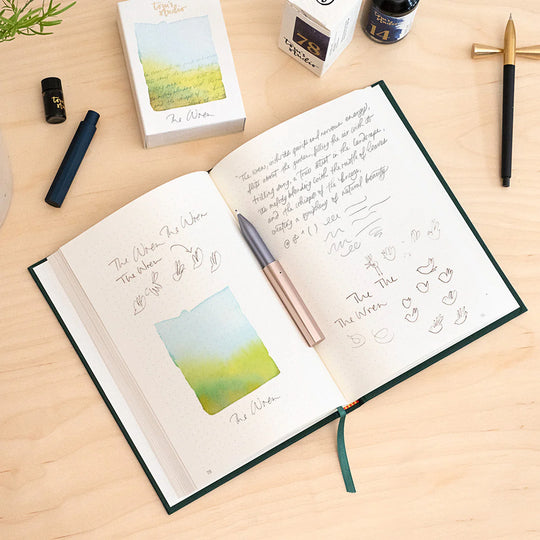 Tom's Studio
The Wren
78
Tom's Studio
14
"The wren, with its gentle and nervous energy,
flits about the garden, filling the air with its
trilling song, a true artist in the landscape,
the melody blending with the rustle of leaves
and the whisper of the breeze,
creating a symphony of natural beauty
@ & * ( )
The Wren The Wren
The Wren
The Wren
The The
The Wren
78